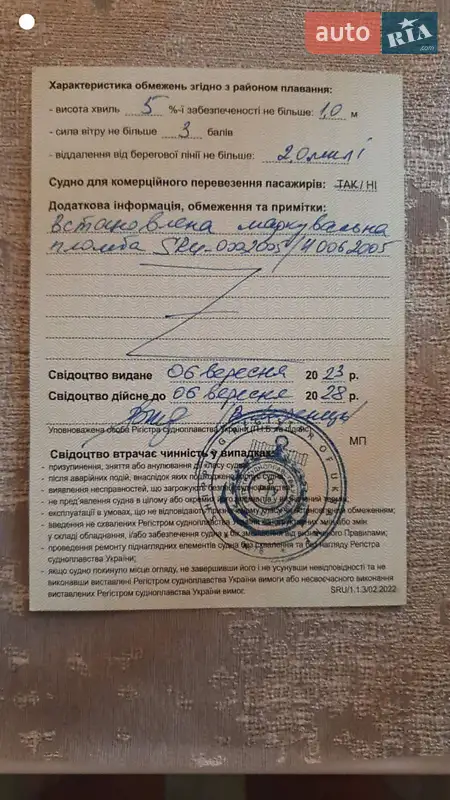 auto RIA .com
Характеристика обмежень згідно з районом плавання:
- висота хвиль 5 %-ї забезпеченості не більше: 1,0 м
- сила вітру не більше 3 балів
- віддалення від берегової лінії не більше: 2,0 милі
Судно для комерційного перевезення пасажирів: ТАК / НІ
Додаткова інформація, обмеження та примітки:
Встановлена маркувальна
пломба SRU-0002005/
Свідоцтво видане 06 вересня 20 23 р.
Свідоцтво дійсне до 06 вересня 20 28 р.
Уповноважена особа Регістра судноплавства України (П.І.Б. та підпис)
МП
Свідоцтво втрачає чинність у випадках:
- призупинення, зняття або анулювання дії класу судна;
- після аварійних подій, внаслідок яких пошкоджено корпус судна;
- виявлення несправностей, що загрожують безпеці судноплавства;
- не пред'явлення судна в цілому або окремих його елементів у визначений термін;
- експлуатації в умовах, що не відповідають присвоєному класу і/чи встановленим обмеженням;
- введення не схвалених Регістром судноплавства України конструктивних змін або змін
у складі обладнання, і/або забезпечення судна у бік зменшення від визначеного Правилами;
- проведення ремонту піднаглядних елементів судна без схвалення та без нагляду Регістра
судноплавства України;
- якщо судно покинуло місце огляду, не завершивши його і не усунувши невідповідності та не
виконавши виставлені Регістром судноплавства України вимоги або несвоєчасного виконання
виставлених Регістром судноплавства України вимог.
SRU/1.1.3/02.2022